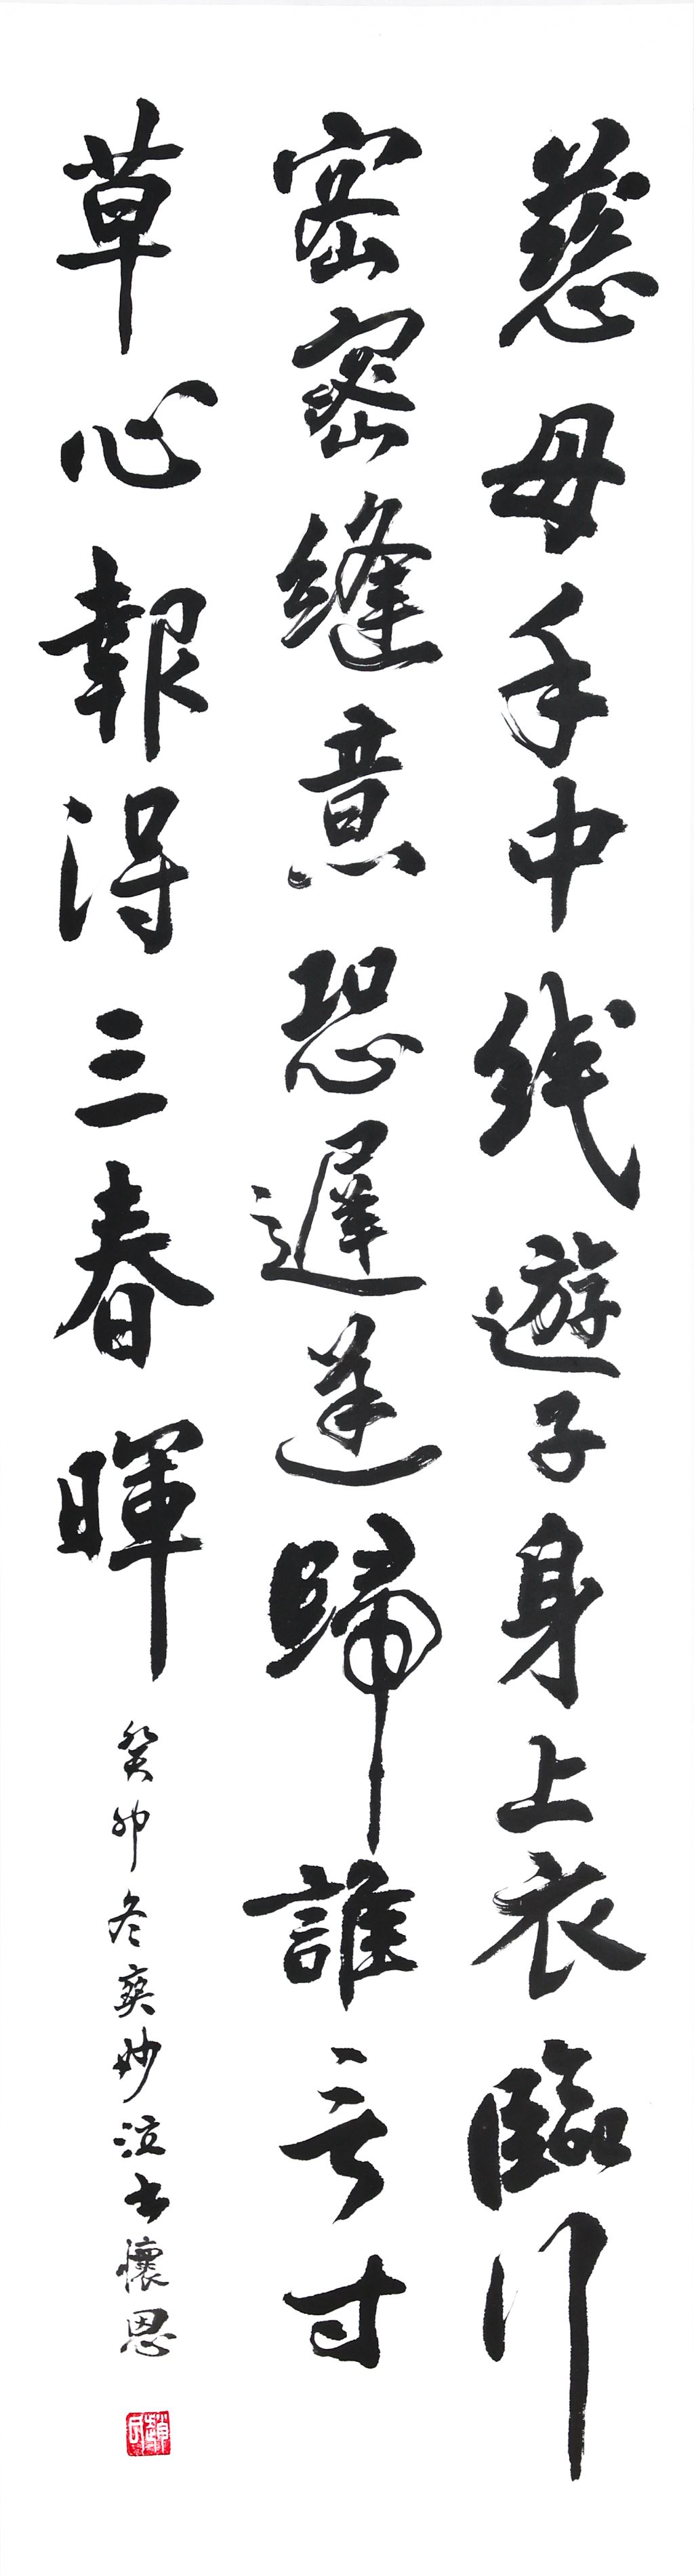 慈母手中线遊子身上衣臨行
密密縫意恐遲遲歸誰言寸
草心報得三春暉
癸卯冬奕妙泣书懷恩